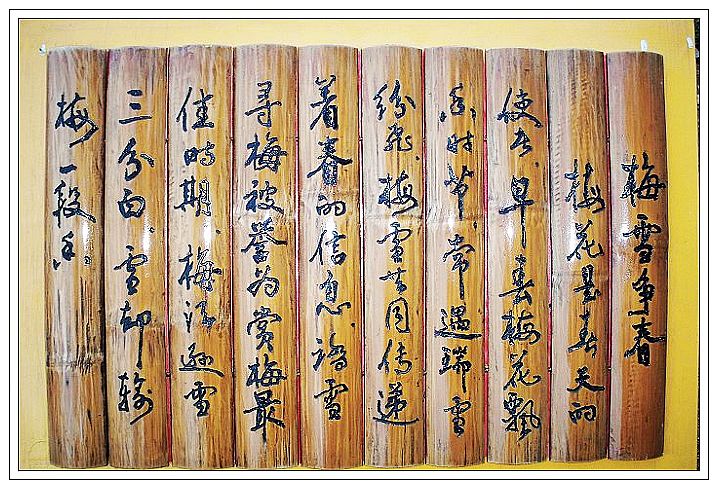 梅雪争春
梅花是春天的
使者，早春梅花飘
香时节，常遇瑞雪
纷飞，梅雪共同传递
着春的信息，踏雪
寻梅被誉为赏梅最
佳时期。梅须逊雪
三分白，雪却输
梅一段香。